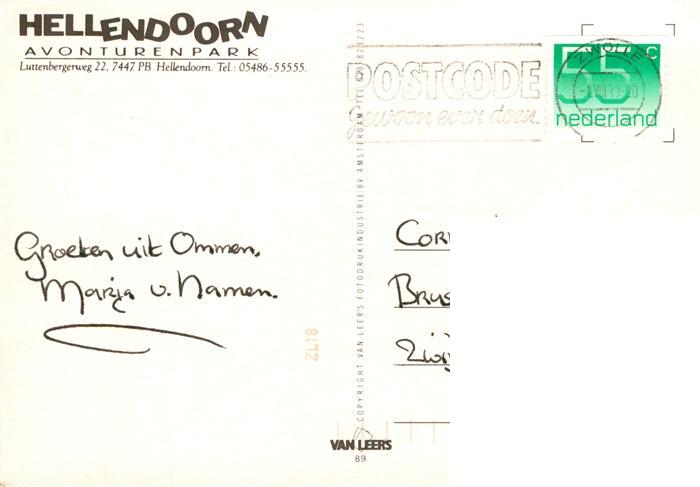 HELLENDOORN
AVONTURENPARK
Luttenbergerweg 22, 7447 PB Hellendoorn. Tel.: 05486-55555.
POSTCODE
Gewoon even doen.
ZWOLLE
55 c
nederland
Groeten uit Ommen,
Marja v. Namen.
ZL18
COPYRIGHT VAN LEER'S FOTODRUKINDUSTRIE BV AMSTERDAM TEL
VAN LEERS
89